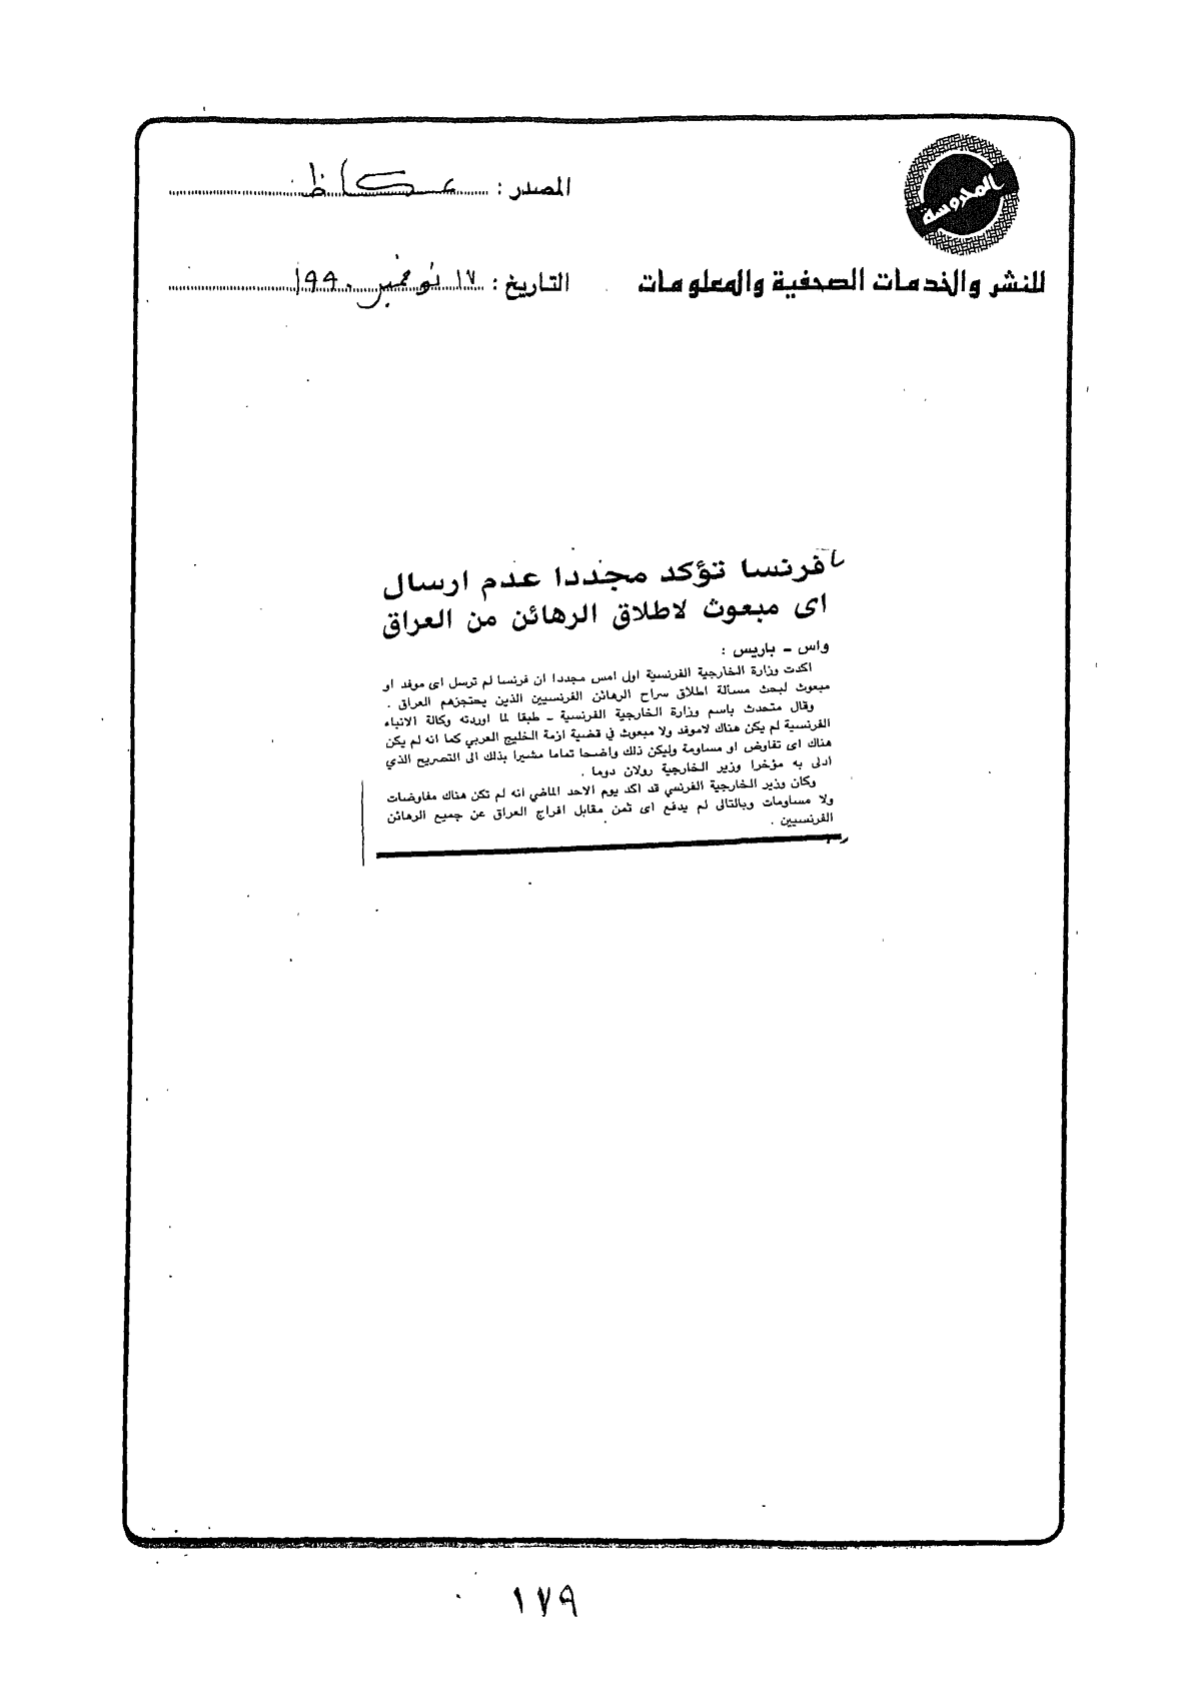 المحروسة
للنشر والخدمات الصحفية والمعلومات
المصدر : عكاظ
التاريخ : ١٧ نوفمبر ١٩٩٠
فرنسا تؤكد مجددا عدم ارسال
اى مبعوث لاطلاق الرهائن من العراق
واس - باريس :
اكدت وزارة الخارجية الفرنسية اول امس مجددا ان فرنسا لم ترسل اى موفد او
مبعوث لبحث مسالة اطلاق سراح الرهائن الفرنسيين الذين يحتجزهم العراق .
وقال متحدث باسم وزارة الخارجية الفرنسية - طبقا لما اوردته وكالة الانباء
الفرنسية لم يكن هناك لاموفد ولا مبعوث في قضية ازمة الخليج العربي كما انه لم يكن
هناك اى تفاوض او مساومة وليكن ذلك واضحا تماما مشيرا بذلك الى التصريح الذي
ادلى به مؤخرا وزير الخارجية رولان دوما .
وكان وزير الخارجية الفرنسي قد اكد يوم الاحد الماضي انه لم تكن هناك مفاوضات
ولا مساومات وبالتالى لم يدفع اى ثمن مقابل افراج العراق عن جميع الرهائن
الفرنسيين .
١٧٩